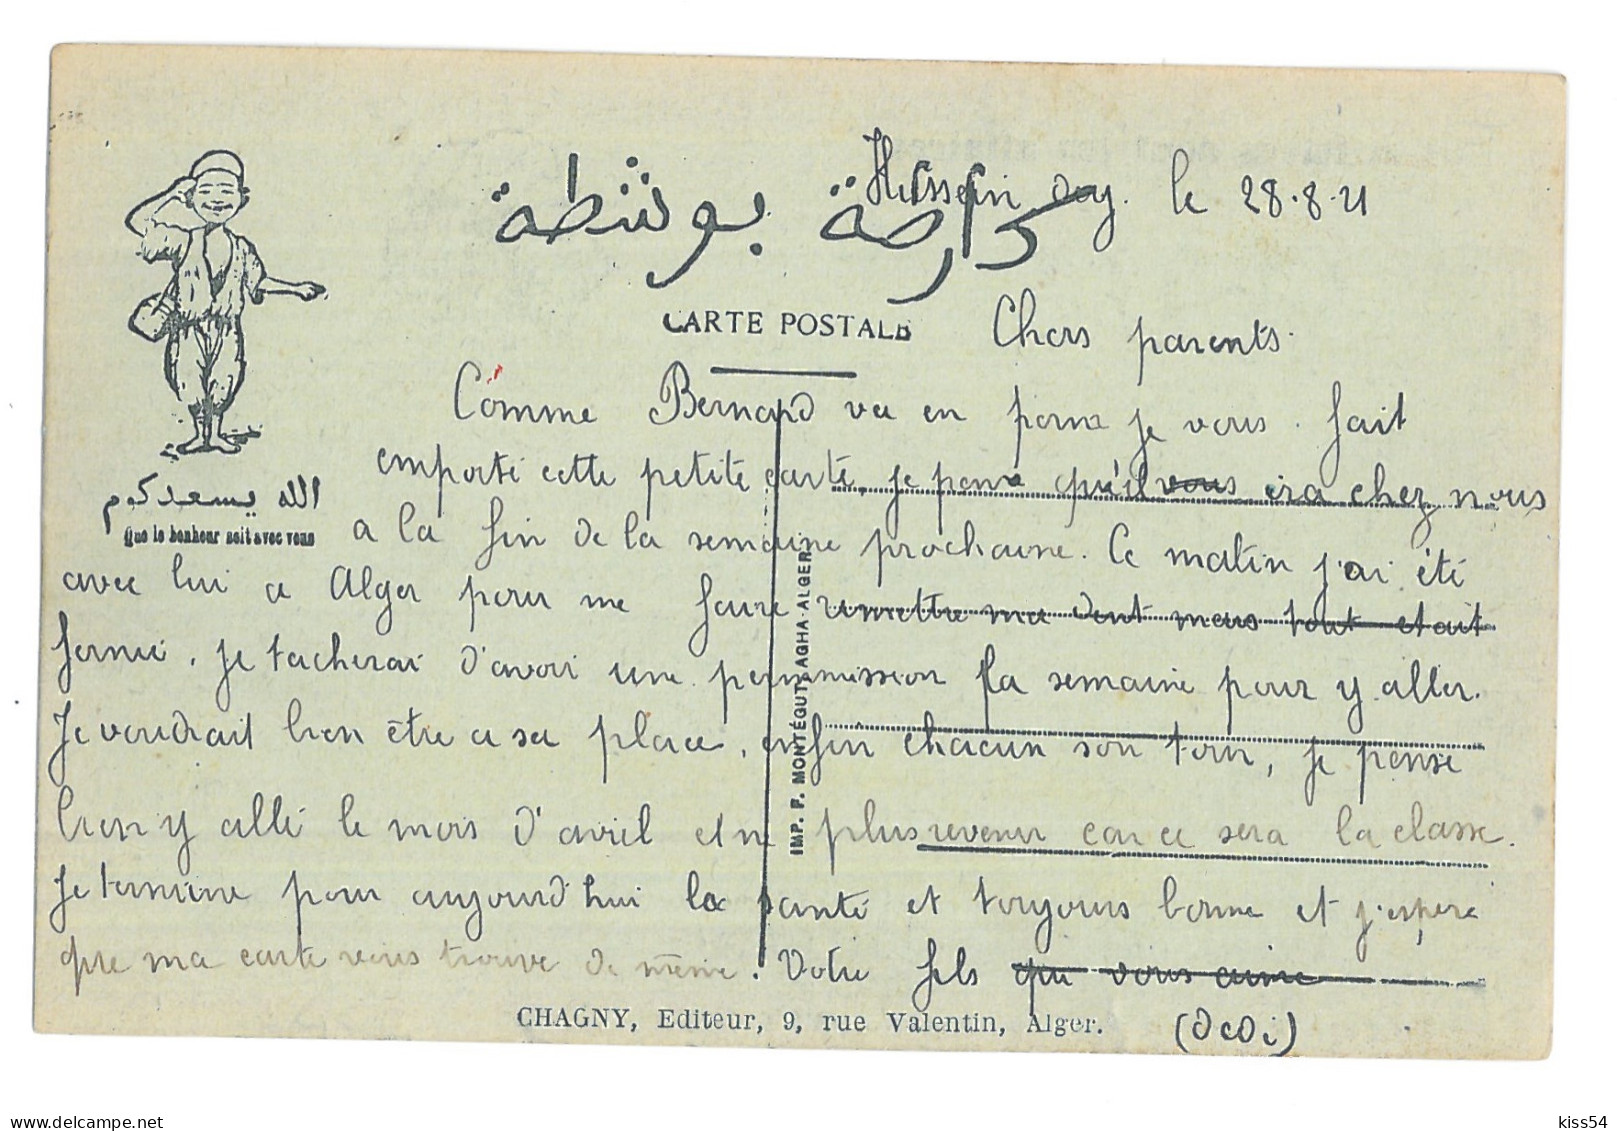 Hussein dey. le 28.8.21
كارطة بوسطة
CARTE POSTALE
Chers parents.
Comme Bernard va en perme je vous fait
emporté cette petite carte, je pense qu'il vous ira chez nous
الله يسعدكوم
Que le bonheur soit avec vous
a la fin de la semaine prochaine. Ce matin j'ai été
avec lui a Alger pour me faire remettre ma dent mais tout etait
fermé. je tacherai d'avoir une permission la semaine pour y aller.
Je voudrait bien être a sa place, enfin chacun son tour, je pense
bien y allé le mois d'avril et ne plus revenir car ce sera la classe.
Je termine pour aujourd'hui la santé et toujours bonne et j'espère
que ma carte vous trouve de même. Votre fils qui vous aime
IMP. P. MONTÉGUT, AGHA-ALGER
CHAGNY, Editeur, 9, rue Valentin, Alger.
kiss54